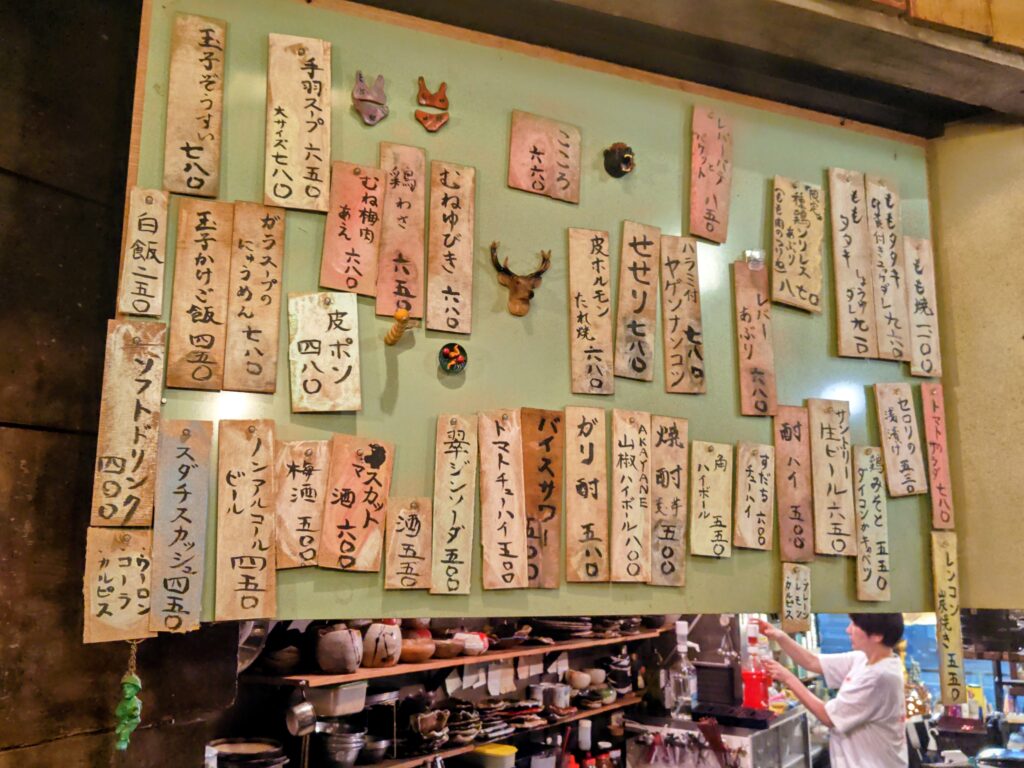 レバーパテと
バゲット 八五〇
こころ
六六〇
手羽スープ 六五〇
大サイズ 七八〇
玉子ぞうすい 七八〇
もも焼 一二〇〇
ももタタキ
ももタタキ しょうゆダレ 九二〇
限定
種鶏ソリレス
あぶり
(もも肉のつけ根) 八七〇
レバー
あぶり 六八〇
ハラミ付
ヤゲンナンコツ 七八〇
せせり 七八〇
皮ホルモン
たれ焼 六八〇
むねゆびき 六八〇
鶏わさ 六五〇
むね梅肉
あえ 六八〇
皮ポン
四八〇
ガラスープの
にゅうめん 七八〇
玉子かけご飯 四五〇
白飯 二五〇
トマトサラダ 七八〇
セロリの
浅漬け 五三〇
鶏みそと
ダイコンかキャベツ 五五〇
サントリー
生ビール 六五〇
酎ハイ 五〇〇
プレーン
レモン
カルピス
すだち
チューハイ 六〇〇
角
ハイボール 五五〇
焼酎 麦 芋 五〇〇
AKAYANE
山椒ハイボール 八〇〇
ガリ酎 五八〇
バイスサワー
トマトチューハイ 五〇〇
翠ジンソーダ 五〇〇
酒 五五〇
マスカット
酒 六〇〇
梅酒 五〇〇
ノンアルコール
ビール 四五〇
スダチスカッシュ 四五〇
ソフトドリンク
四〇〇
ウーロン
コーラ
カルピス
レンコン
炭焼き 五五〇